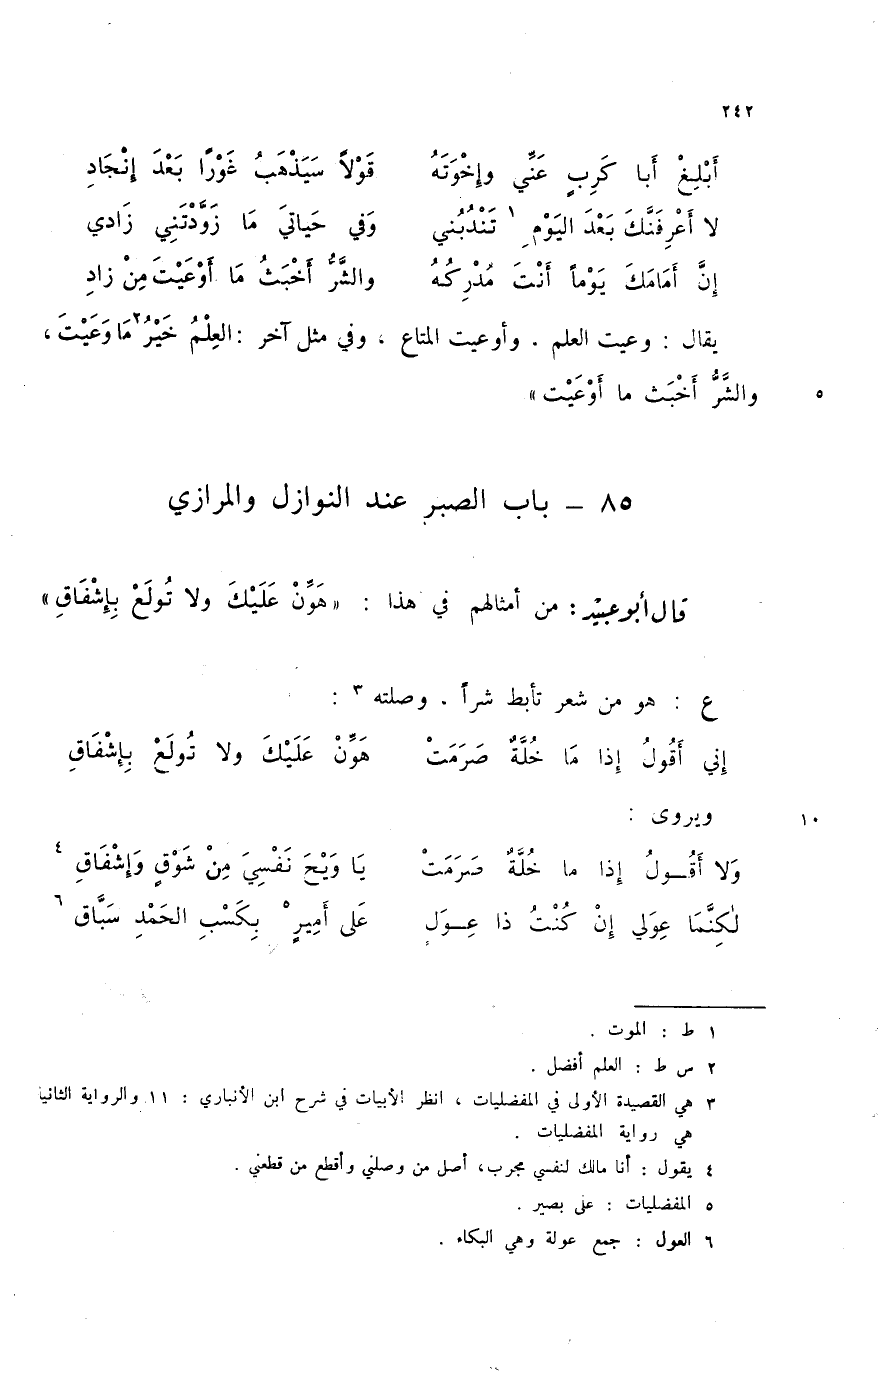 ٢٤٢
أَبْلِغْ أَبا كَرِبٍ عَنِّي وإخْوَتَهُ قَوْلاً سَيَذْهَبُ غَوْرًا بَعْدَ إنْجَادِ
لا أَعْرِفَنَّكَ بَعْدَ اليَوْمِ ١ تَنْدُبُني وَفي حَياتيَ مَا زَوَّدْتَنِي زَادي
إنَّ أَمَامَكَ يَوْماً أَنْتَ مُدْرِكُهُ والشَّرُّ أَخْبَثُ مَا أَوْعَيْتَ مِنْ زادِ
يقال : وعيت العلم . وأوعيت المتاع ، وفي مثل آخر : العِلْمُ خَيْرُ ٢ مَا وَعَيْتَ ،
والشَّرُّ أَخْبَث ما أَوْعَيْت » ٥
٨٥ – باب الصبر عند النوازل والمرازي
قال أبو عبيد : من أمثالهم في هذا : « هَوِّنْ عَلَيْكَ ولا تُولَعْ بِإشْفَاقِ »
ع : هو من شعر تأبط شراً . وصلته ٣ :
إني أَقُولُ إذا مَا خُلَّةٌ صَرَمَتْ هَوِّنْ عَلَيْكَ ولا تُولَعْ بِإشْفَاقِ
ويروى : ١٠
وَلا أَقُـولُ إذا ما خُلَّةٌ صَرَمَتْ يَا وَيْحَ نَفْسِيَ مِنْ شَوْقٍ وَإشْفَاقِ ٤
لٰكِنَّمَا عِوَلي إنْ كُنْتُ ذا عِـوَلٍ عَلى أَمِيرٍ ٥ بِكَسْبِ الحَمْدِ سَبَّاقِ ٦
١ ط : الموت .
٢ س ط : العلم أفضل .
٣ هي القصيدة الأولى في المفضليات ، انظر الأبيات في شرح ابن الأنباري : ١١ والرواية الثانية
هي رواية المفضليات .
٤ يقول : أنا مالك لنفسي مجرب ، أصل من وصلني وأقطع من قطعني .
٥ المفضليات : على بصير .
٦ العول : جمع عولة وهي البكاء .